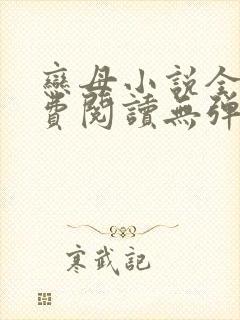 戀母小説全
費閱讀無彈
寒武記